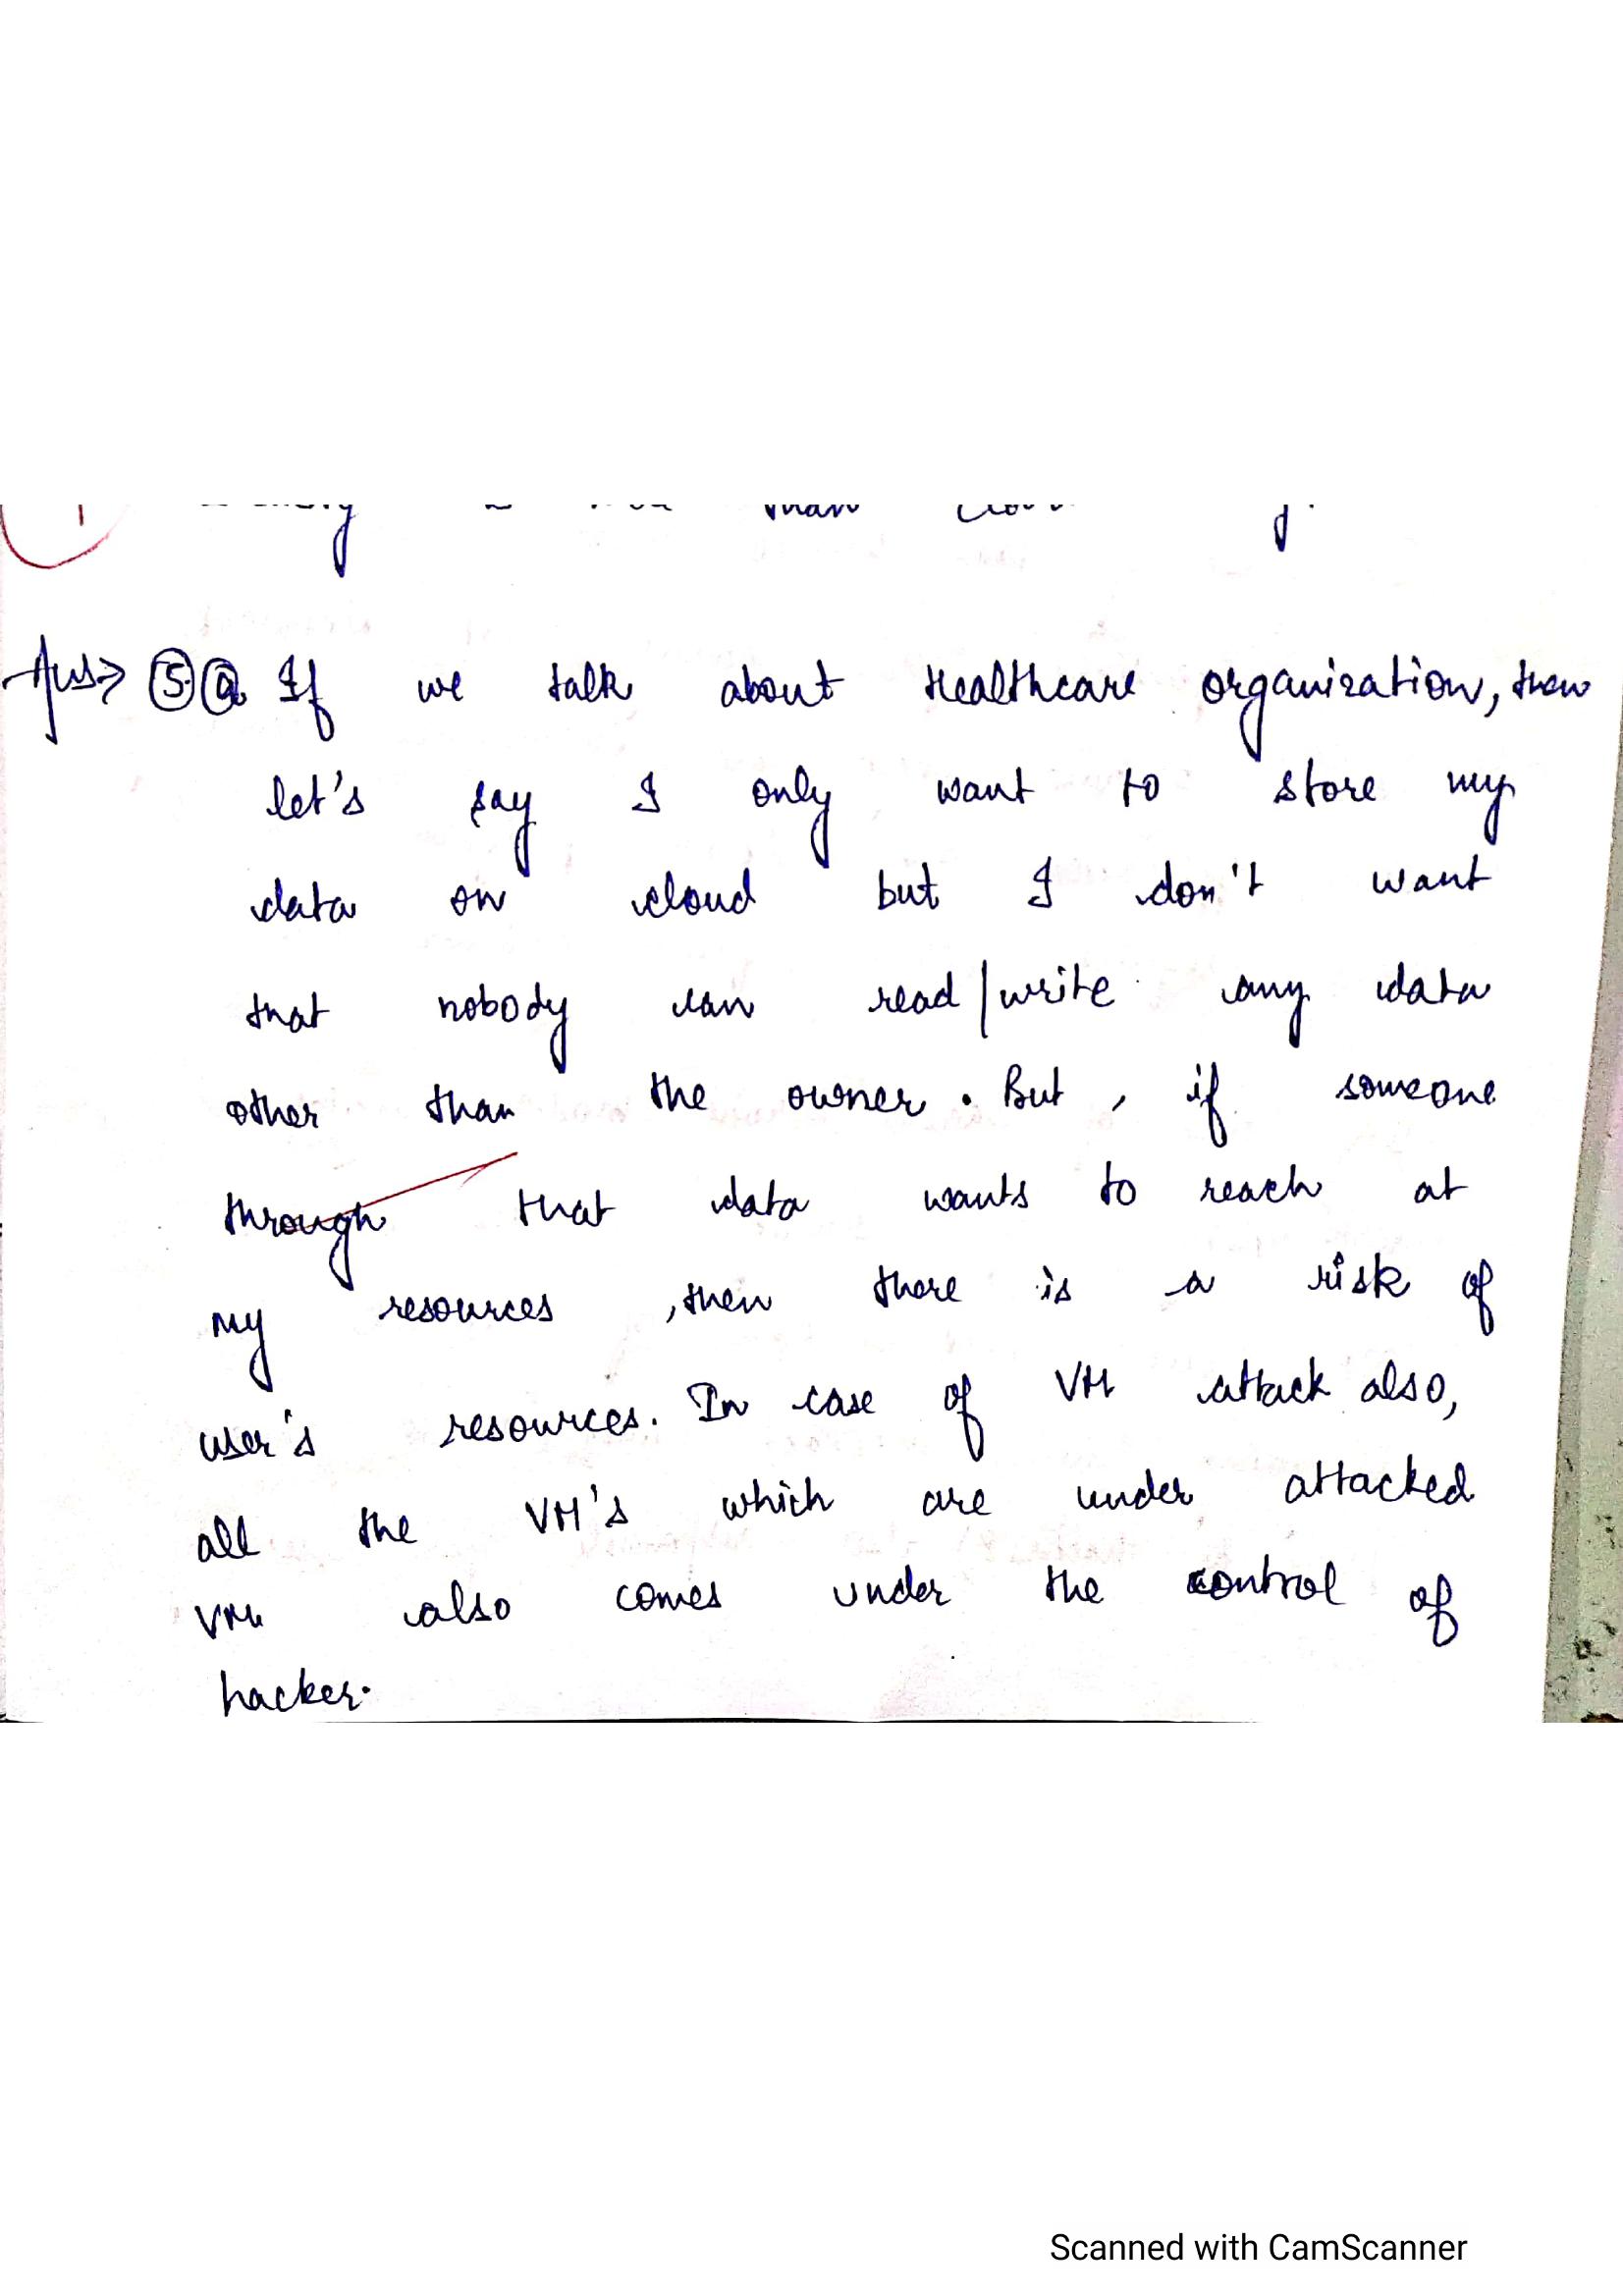 than
Ans> 5 a If we talk about Healthcare organization, then
let's say I only want to store my
data on cloud but I don't want
that nobody can read/write any data
other than the owner. But, if someone
through that data wants to reach at
my resources, then there is a risk of
user's resources. In case of VM attack also,
all the VM's which are under attacked
VM also comes under the control of
hacker.
Scanned with CamScanner